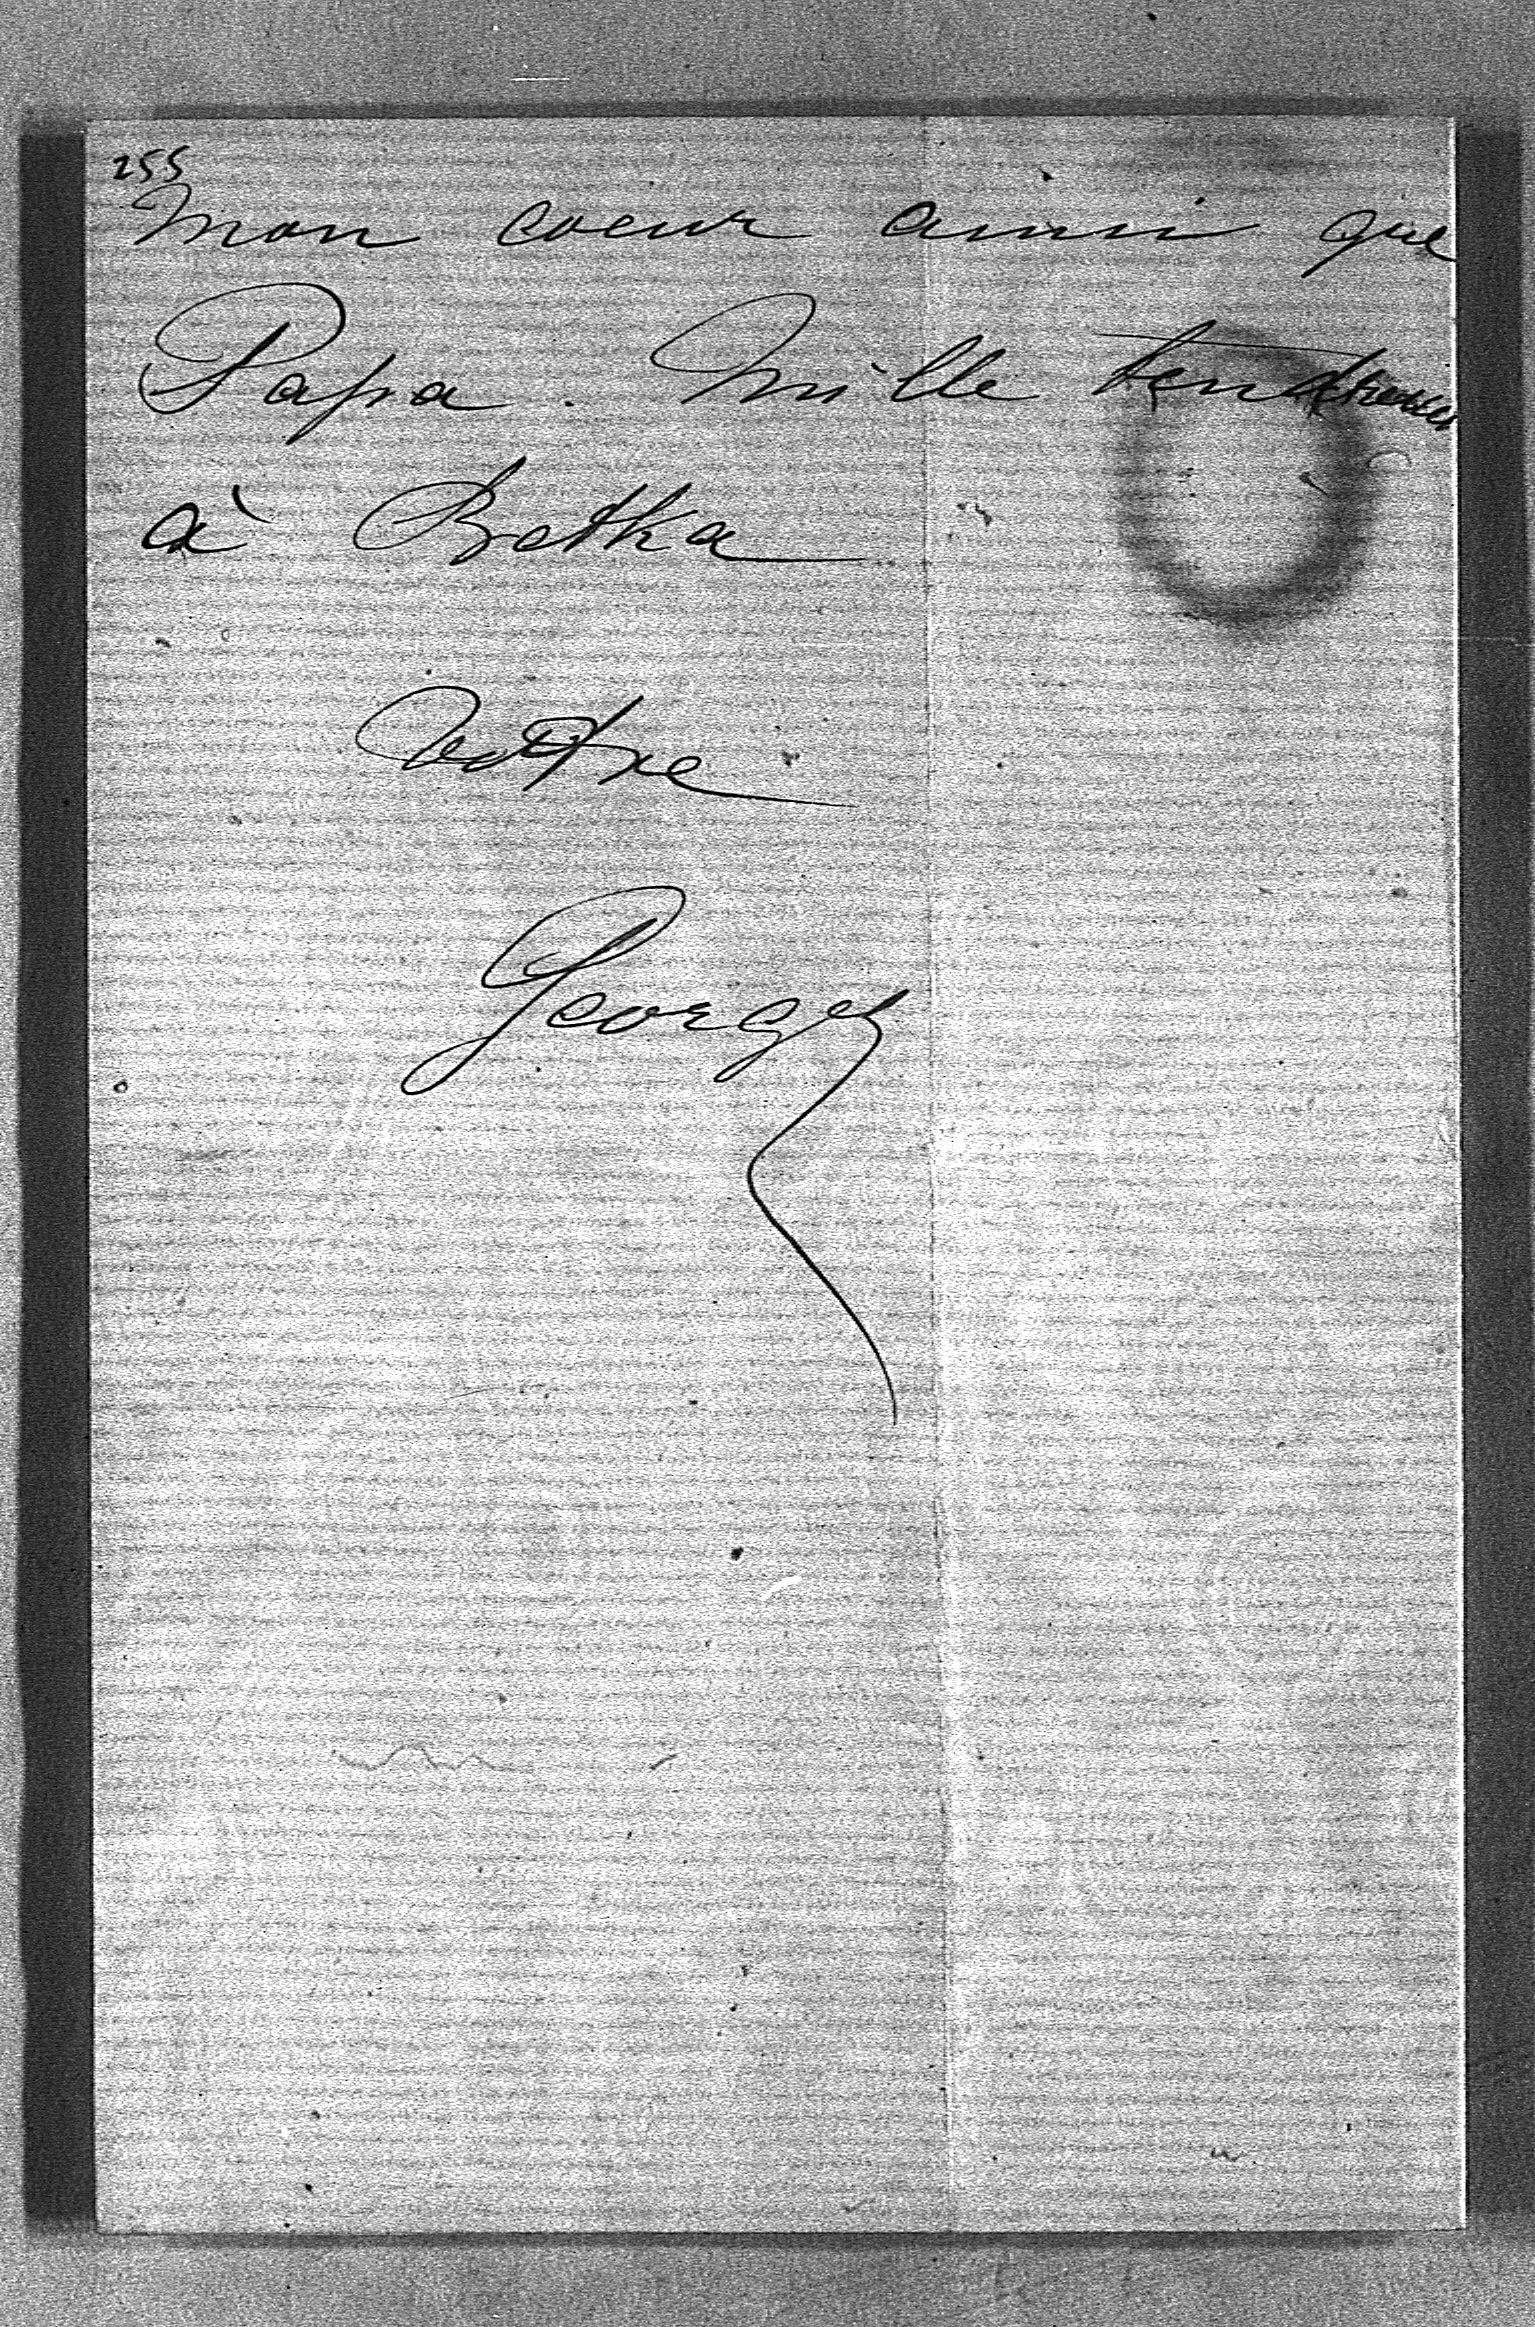 255
mon coeur ainsi que
Papa. Mille tendresses
à Betka
Votre
Georges